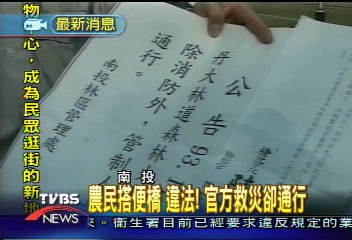 最新消息
物中心,成為民眾逛街的新地
公告
丹大林道森林
除消防外,管制人
通行。
南投林區管理處
南投
農民搭便橋 違法!官方救災卻通行
TVBS
NEWS
衛生署目前已經要求違反規定的業